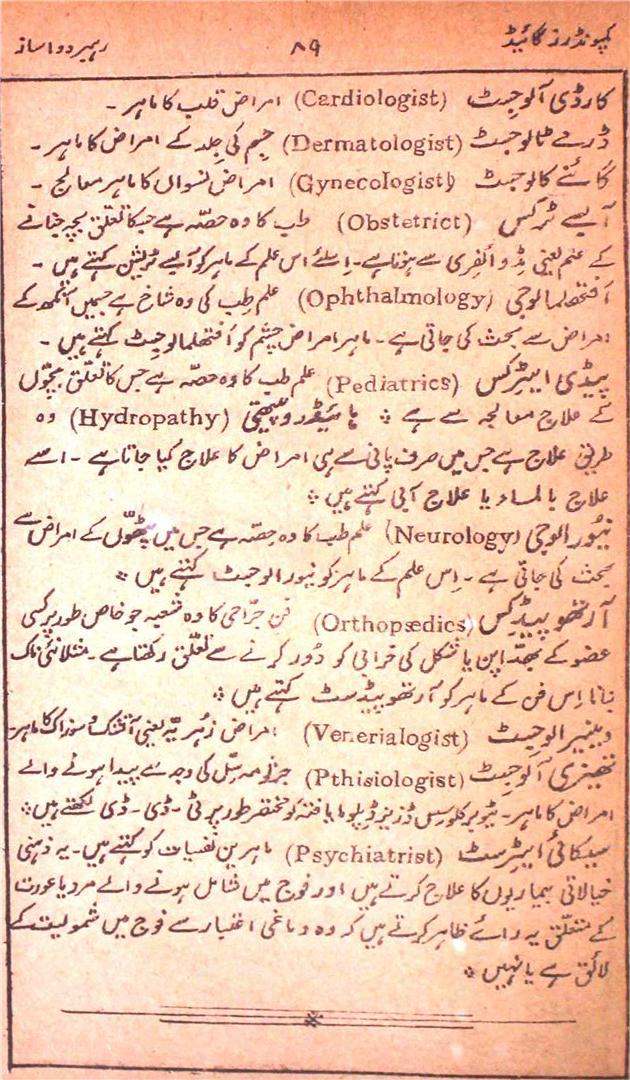 کمپونڈرز گائیڈ ۸۹ رہبر دواساز
کارڈی آلوجسٹ (Cardiologist) امراض قلب کا ماہر ۔
ڈرمے ٹالوجسٹ (Dermatologist) جسم کی جِلد کے امراض کا ماہر ۔
گائنے کالوجسٹ (Gynecologist) امراض نسواں کا ماہر معالج ۔
آبسے ٹرکس (Obstetrict) طب کا وہ حصّہ ہے جسکا تعلق بچہ جنانے
کے علم یعنی مڈوائفری سے ہوتا ہے۔ اِسلئے اس علم کے ماہر کو آبسے ٹریشن کہتے ہیں ۔
اَفتھلمالوجی (Ophthalmology) علم طب کی وہ شاخ ہے جسمیں آنکھ کے
امراض سے بحث کی جاتی ہے ۔ ماہر امراض چشم کو اَفتھلمالوجسٹ کہتے ہیں ۔
پیڈی ایٹرکس (Pediatrics) علم طب کا وہ حصّہ ہے جس کا تعلّق بچّوں
کے علاج معالجہ سے ہے ۞ ہائیڈروپیتھی (Hydropathy) وہ
طریق علاج ہے جس میں صرف پانی سے ہی امراض کا علاج کیا جاتا ہے ۔ اسے
علاج بالماء یا علاج آبی کہتے ہیں ۞
نیُورالوجی (Neurology) علم طب کا وہ حصّہ ہے جس میں پٹھوّں کے امراض سے
بحث کی جاتی ہے ۔ اِس علم کے ماہر کو نیورالوجسٹ کہتے ہیں ۞
آرتھوپیڈکس (Orthopædics) فن جرّاحی کا وہ شعبہ جو خاص طور پر کسی
عضو کے بھدّاپن یا شکل کی خرابی کو دُور کرنے سے تعلّق رکھتا ہے ۔ مثلاً نئی ناک
بنانا اِس فن کے ماہر کو آرتھوپیڈسٹ کہتے ہیں ۞
وینیرالوجسٹ (Venerialogist) امراض زُہریّہ یعنی آتشک و سوزاک کا ماہر۔
تھیزی آلوجسٹ (Pthisiologist) جرثومہ سِل کی وجہ سے پیدا ہونے والے
امراض کا ماہر ۔ ٹیوبرکلوسس ڈزیز ڈپلوما یافتہ کو مختصر طور پر ٹی ۔ ڈی ۔ ڈی لکھتے ہیں ۞
سیکائی ایٹرسٹ (Psychiatrist) ماہرین نفسیات کو کہتے ہیں ۔ یہ ذہنی
خیالاتی بیماریوں کا علاج کرتے ہیں اور فوج میں شامل ہونے والے مرد یا عورت
کے متعلّق یہ رائے ظاہر کرتے ہیں کہ وہ دماغی اعتبار سے فوج میں شمولیت کے
لائق ہے یا نہیں ۞